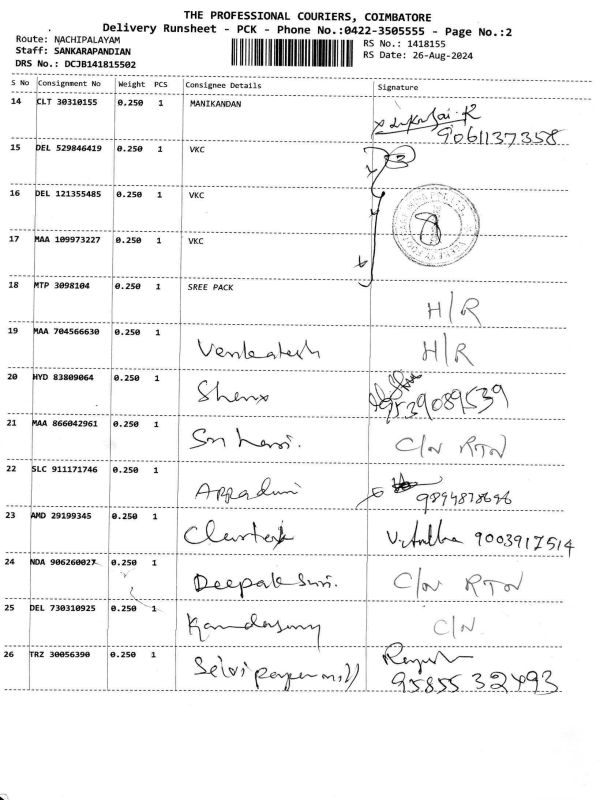 THE PROFESSIONAL COURIERS, COIMBATORE
Delivery Runsheet - PCK - Phone No.:0422-3505555 - Page No.:2
Route: NACHIPALAYAM
RS No.: 1418155
Staff: SANKARAPANDIAN
RS Date: 26-Aug-2024
DRS No.: DCJB141815502
S No Consignment No Weight PCS Consignee Details Signature
14 CLT 30310155 0.250 1 MANIKANDAN
9061137358
15 DEL 529846419 0.250 1 VKC
3
16 DEL 121355485 0.250 1 VKC
17 MAA 109973227 0.250 1 VKC
18 MTP 3098104 0.250 1 SREE PACK H/R
19 MAA 704566630 0.250 1 Venkatesh H/R
20 HYD 83809064 0.250 1 9539089539
21 MAA 866042961 0.250 1 Sri hari. C/N RTN
22 SLC 911171746 0.250 1 Appaduri
23 AMD 29199345 0.250 1 9003917514
24 NDA 906260027 0.250 1 Deepak Suri. C/N RTN
25 DEL 730310925 0.250 1 Kandasamy C/N
26 TRZ 30056390 0.250 1 Selvi paper mill
95855 32493